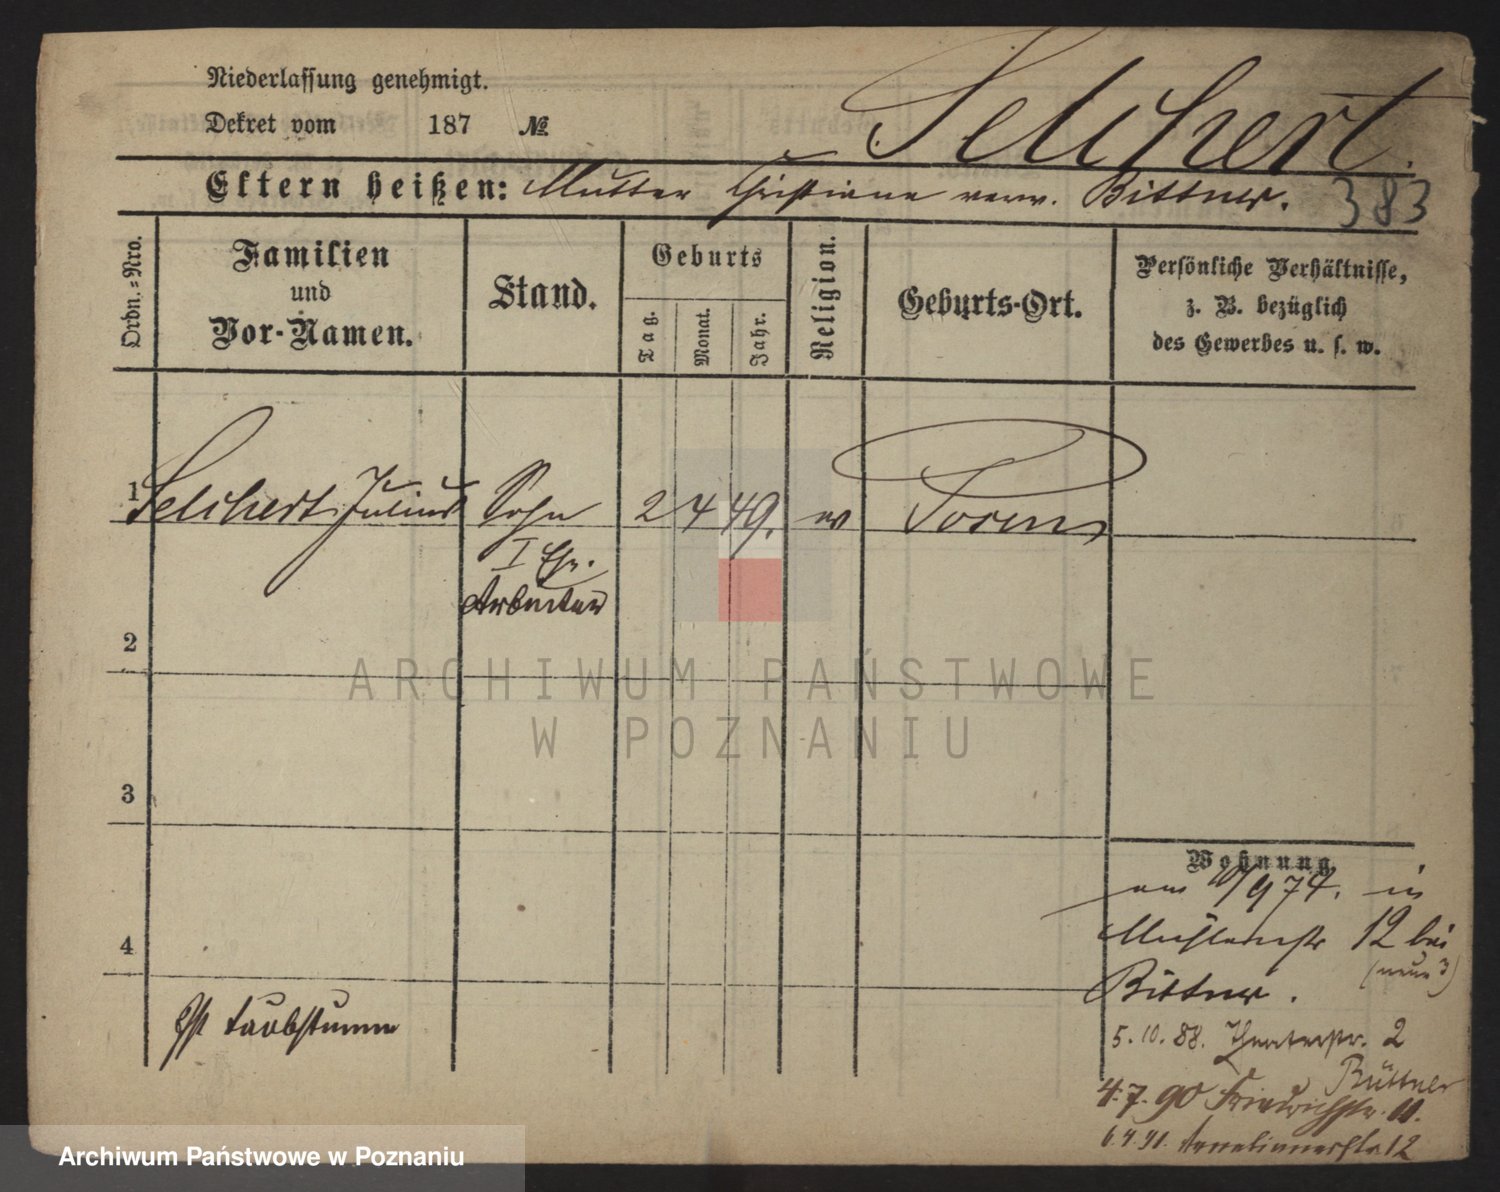 Niederlassung genehmigt.
Dekret vom 187 №
Selchert.
Eltern heißen: Mutter Christiane verw. Bittner. 383
Ordn.=Nro.
Familien
und
Vor-Namen.
Stand.
Geburts
Tag.
Monat.
Jahr.
Religion.
Geburts-Ort.
Persönliche Verhältnisse,
z. B. bezüglich
des Gewerbes u. s. w.
1 Selchert Julius Sohn 2 4 49. ev Posen
I Ehe.
Arbeiter
2
3
4
Wohnung.
am /9 74. in
Mühlenstr 12 bei
(neue 3)
Bittner.
Ist taubstumm
5. 10. 88. Theaterstr. 2
Büttner
4. 7. 90 Friedrichstr. 11.
6.4.91. 12
ARCHIWUM PAŃSTWOWE
W POZNANIU
Archiwum Państwowe w Poznaniu